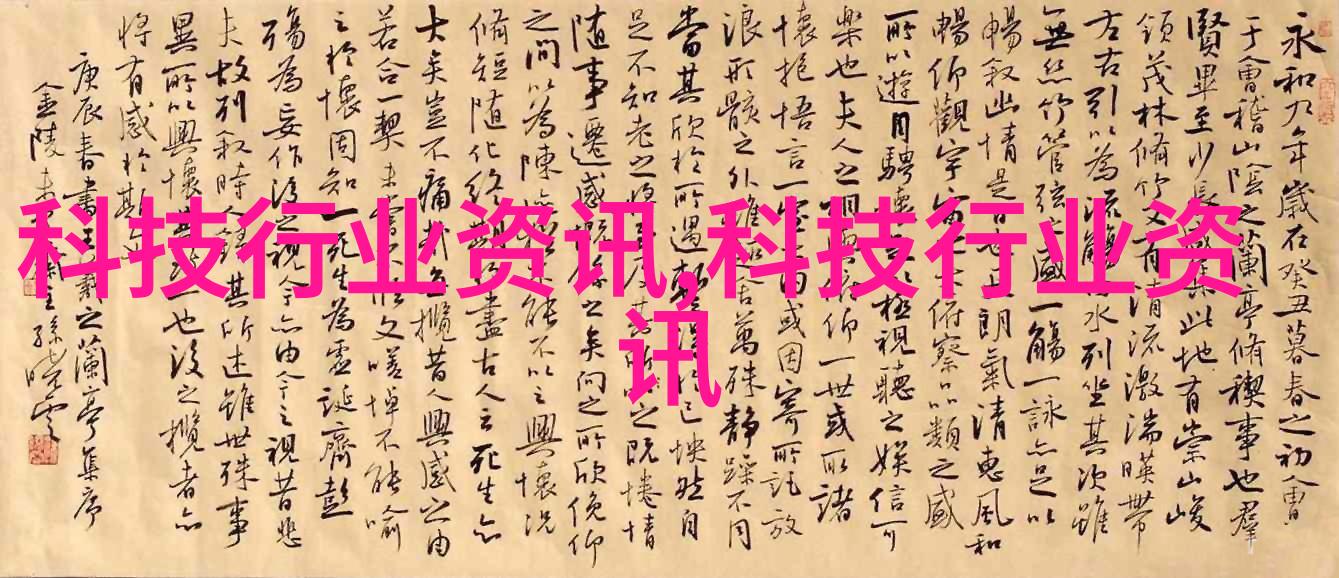 科技行业资讯,科技行业资
讯
永和九年歲在癸丑暮春之初會
于會稽山陰之蘭亭脩禊事也羣
賢畢至少長咸集此地有崇山峻
領茂林脩竹又有清流激湍暎帶
左右引以為流觴曲水列坐其次雖
無絲竹管弦之盛一觴一詠亦足以
暢叙幽情是日也天朗氣清惠風和
暢仰觀宇宙之大俯察品類之盛
所以遊目騁懷足以極視聽之娛信可
樂也夫人之相與俯仰一世或取諸
懷抱悟言一室之內或因寄所託放
浪形骸之外雖趣舍萬殊靜躁不同
當其欣於所遇暫得於己怏然自
足不知老之將至及其所之既惓情
隨事遷感慨係之矣向之所欣俛仰
之間以為陳迹猶不能不以之興懷況
脩短隨化終期於盡古人云死生亦
大矣豈不痛哉每攬昔人興感之由
若合一契未嘗不臨文嗟悼不能喻
之於懷固知一死生為虛誕齊彭
殤為妄作後之視今亦由今之視昔悲
夫故列叙時人錄其所述雖世殊事
異所以興懷其致一也後之攬者亦
將有感於斯文
庚辰春書王羲之蘭亭集序
金陵孫曉雲